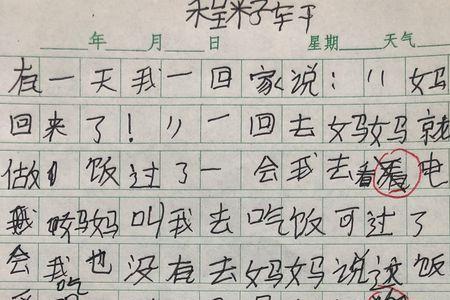 程籽轩
年 月 日 星期 天气
有一天我一回家说：〃妈
回来了！〃一回去妈妈就
做饭过了一会我去看电
妈妈叫我去吃饭可过了
会我也没有去妈妈说这饭
吃